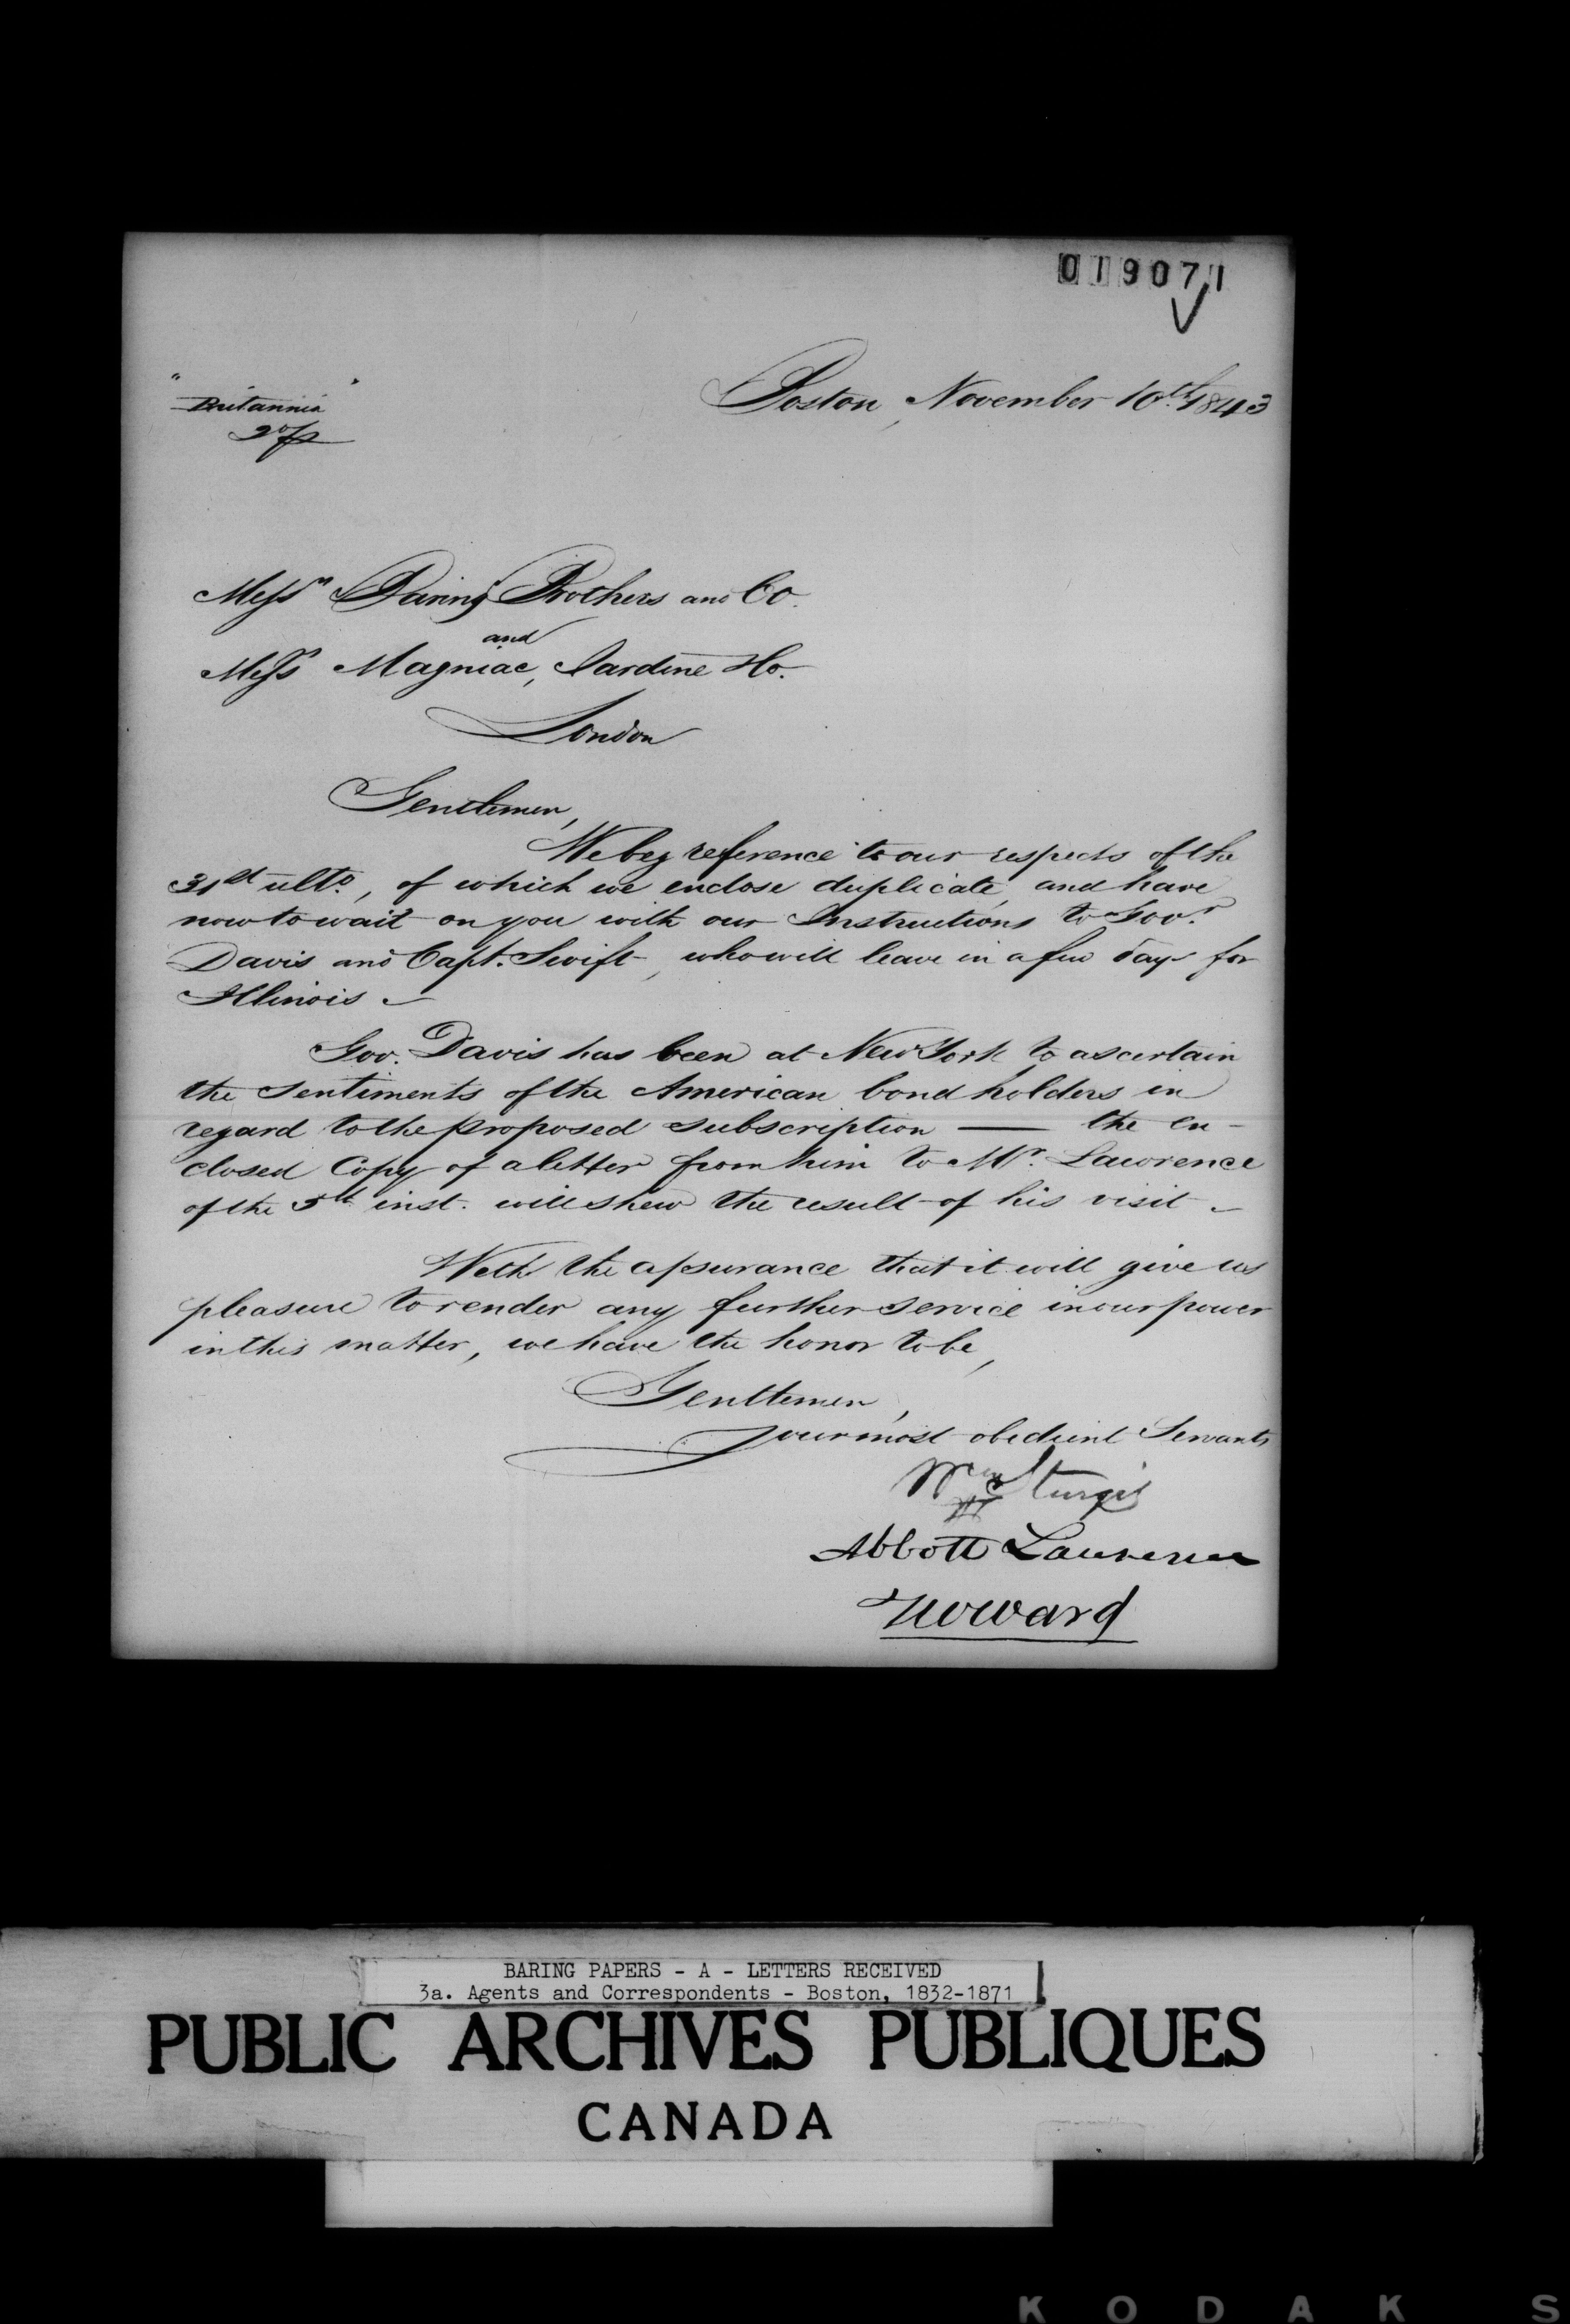 019071
Boston, November 10th 1843
"Britannia"
Messrs Baring Brothers and Co.
and
Messrs Magniac, Jardine & Co.
London
Gentlemen,
We beg reference to our respects of the
31st ulto, of which we enclose duplicate, and have
now to wait on you with our Instructions to Govr
Davis and Capt. Swift, who will leave in a few days for
Illinois.
Gov. Davis has been at New York to ascertain
the sentiments of the American bond holders in
regard to the proposed subscription — the en-
closed Copy of a letter from him to Mr. Lawrence
of the 5th inst. will shew the result of his visit.
With the assurance that it will give us
pleasure to render any further service in our power
in this matter, we have the honor to be,
Gentlemen,
Your most obedient Servants
Wm Sturgis
Abbott Lawrence
TWWard
BARING PAPERS - A - LETTERS RECEIVED
3a. Agents and Correspondents - Boston, 1832-1871
PUBLIC ARCHIVES PUBLIQUES
CANADA
KODAK S